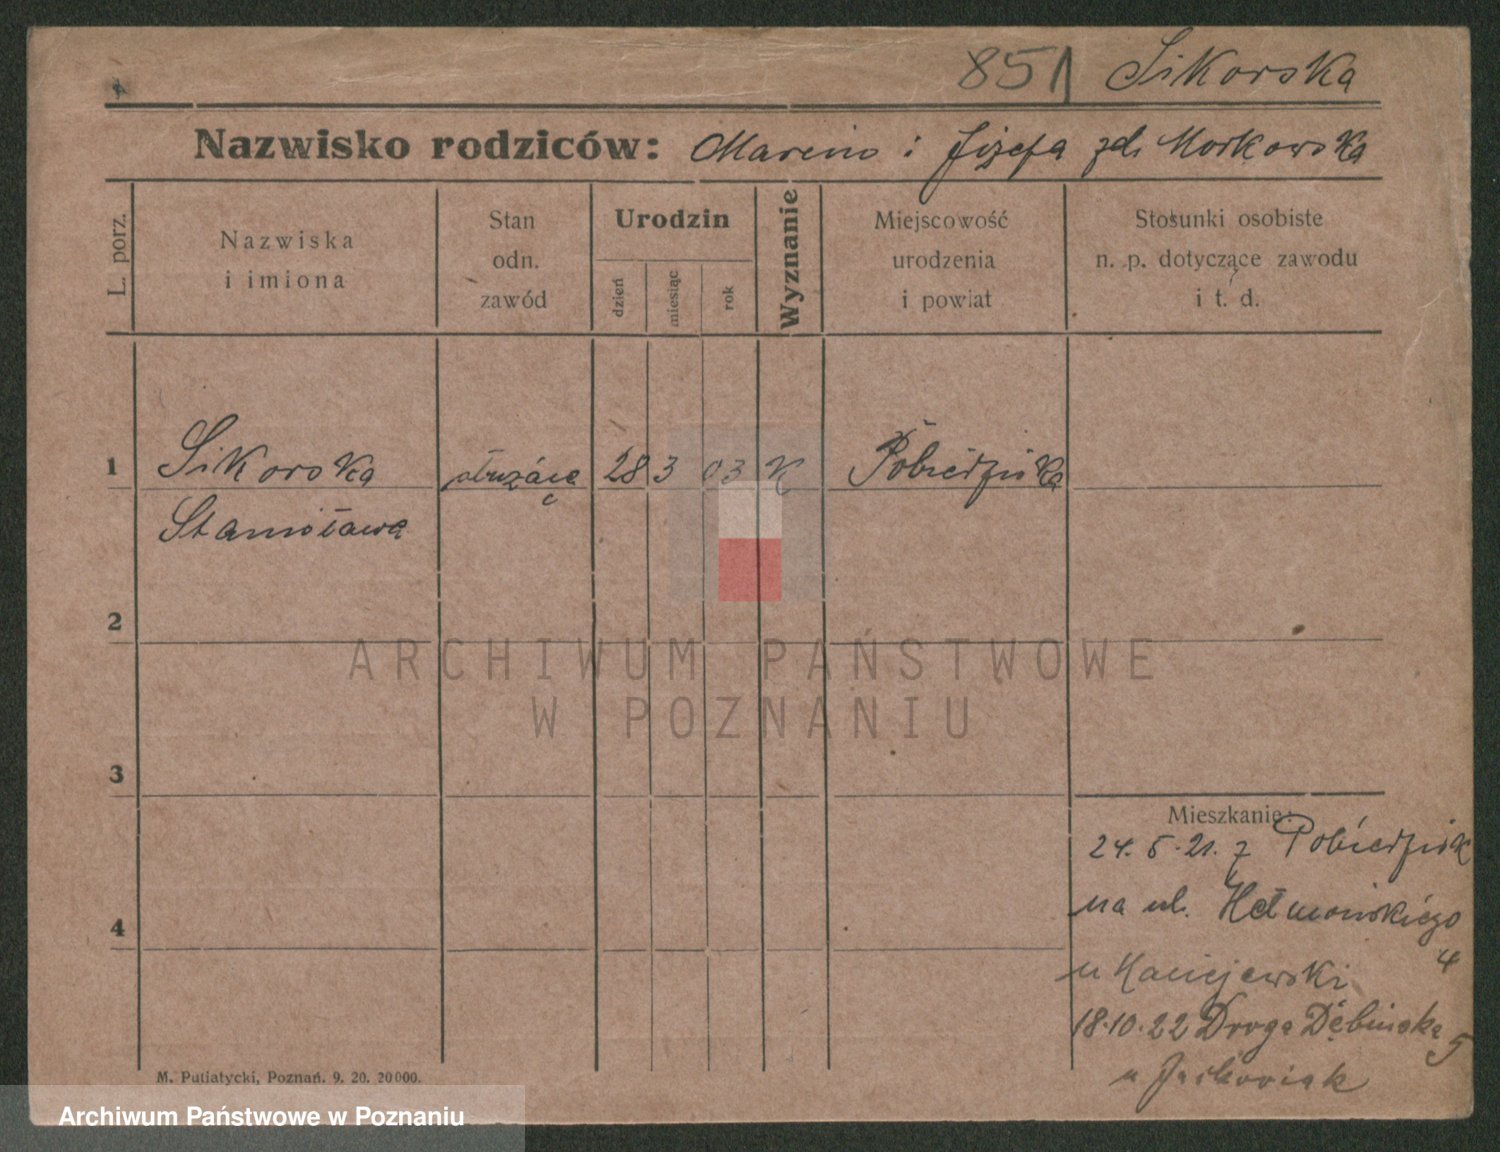 851 Sikorska
Nazwisko rodziców: Marcin i Józefa zd. Morkowska
L. porz.
Nazwiska
i imiona
Stan
odn.
zawód
Urodzin
dzień
miesiąc
rok
Wyznanie
Miejscowość
urodzenia
i powiat
Stosunki osobiste
n. p. dotyczące zawodu
i t. d.
1 Sikorska służąca 28 3 03 K Pobiedziska
Stanisława
2
3
4
Mieszkanie:
24. 5. 21. z Pobiedzisk
na ul. Hełmońskiego
4
u Maciejewski
18.10.22 Droga Dębińska
5
u Jaśkowiak
M. Putiatycki, Poznań. 9. 20. 20000.
ARCHIWUM PAŃSTWOWE
W POZNANIU
Archiwum Państwowe w Poznaniu